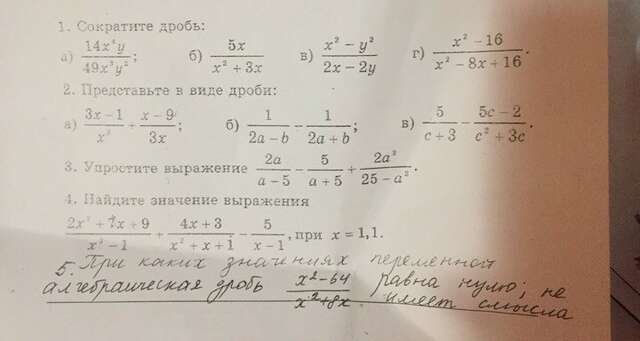 1. Сократите дробь:
а) 14x⁴y / 49x³y²; б) 5x / x² + 3x в) x² − y² / 2x − 2y г) x² − 16 / x² − 8x + 16.
2. Представьте в виде дроби:
а) 3x − 1 / x² + x − 9 / 3x; б) 1 / 2a − b − 1 / 2a + b; в) 5 / c + 3 − 5c − 2 / c² + 3c.
3. Упростите выражение 2a / a − 5 − 5 / a + 5 + 2a² / 25 − a².
4. Найдите значение выражения
2x² + 7x + 9 / x³ − 1 + 4x + 3 / x² + x + 1 − 5 / x − 1, при x = 1,1.
5. При каких значениях переменной
алгебраическая дробь x² − 64 / x² + 8x равна нулю; не
имеет смысла